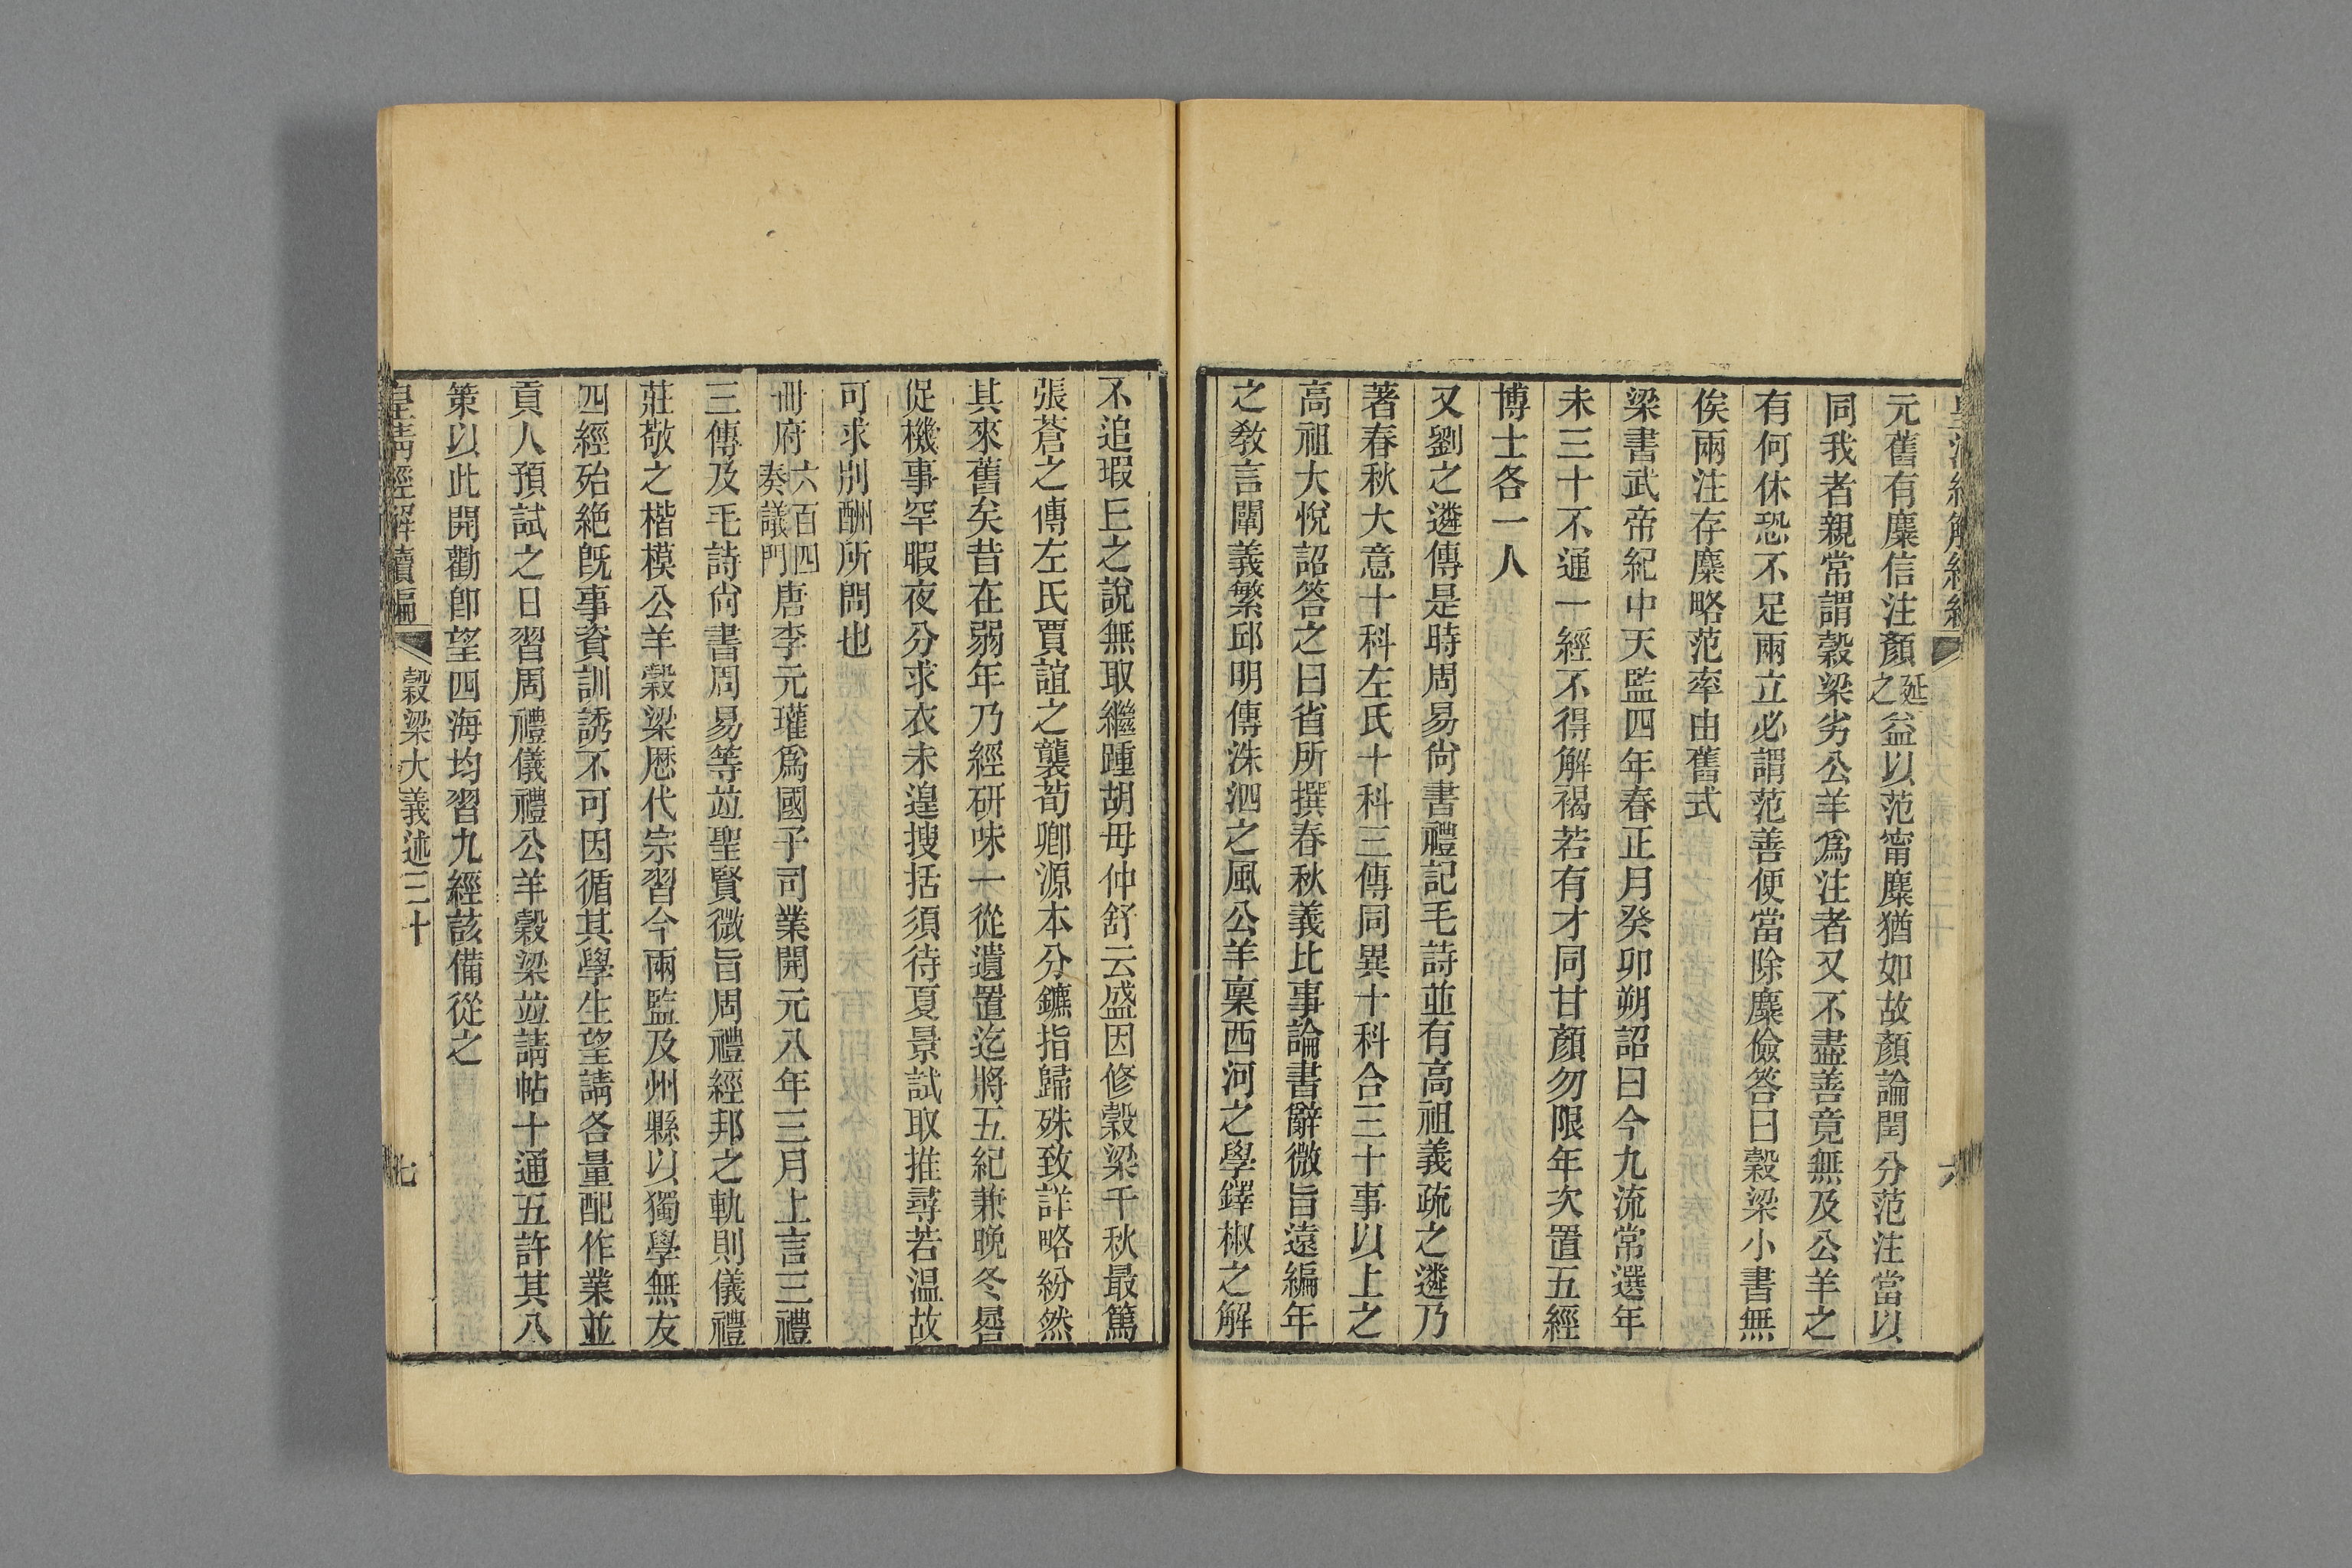 元舊有麋信注顏延之益以范甯麋猶如故顏論閏分范注當以
同我者親常謂穀梁劣公羊爲注者又不盡善竟無及公羊之
有何休恐不足兩立必謂范善便當除麋儉答曰穀梁小書無
俟兩注存麋略范率由舊式
梁書武帝紀中天監四年春正月癸卯朔詔曰今九流常選年
未三十不通一經不得解褐若有才同甘顏勿限年次置五經
博士各一人
又劉之遴傳是時周易尙書禮記毛詩並有高祖義疏之遴乃
著春秋大意十科左氏十科三傳同異十科合三十事以上之
高祖大悅詔答之曰省所撰春秋義比事論書辭微旨遠編年
之敎言闡義繁邱明傳洙泗之風公羊稟西河之學鐸椒之解
不追瑕巨之說無取繼踵胡毋仲舒云盛因修穀梁千秋最篤
張蒼之傳左氏賈誼之襲荀卿源本分鑣指歸殊致詳略紛然
其來舊矣昔在弱年乃經研味一從遺置迄將五紀兼晚冬晷
促機事罕暇夜分求衣未遑搜括須待夏景試取推尋若温故
可求別酬所問也
冊府六百四奏議門唐李元瓘爲國子司業開元八年三月上言三禮
三傳及毛詩尙書周易等竝聖賢微旨周禮經邦之軌則儀禮
莊敬之楷模公羊穀梁歷代宗習今兩監及州縣以獨學無友
四經殆絶旣事資訓誘不可因循其學生望請各量配作業並
貢人預試之日習周禮儀禮公羊穀梁竝請帖十通五許其八
策以此開勸卽望四海均習九經該備從之
皇淸經解續編
穀梁大義述三十
七